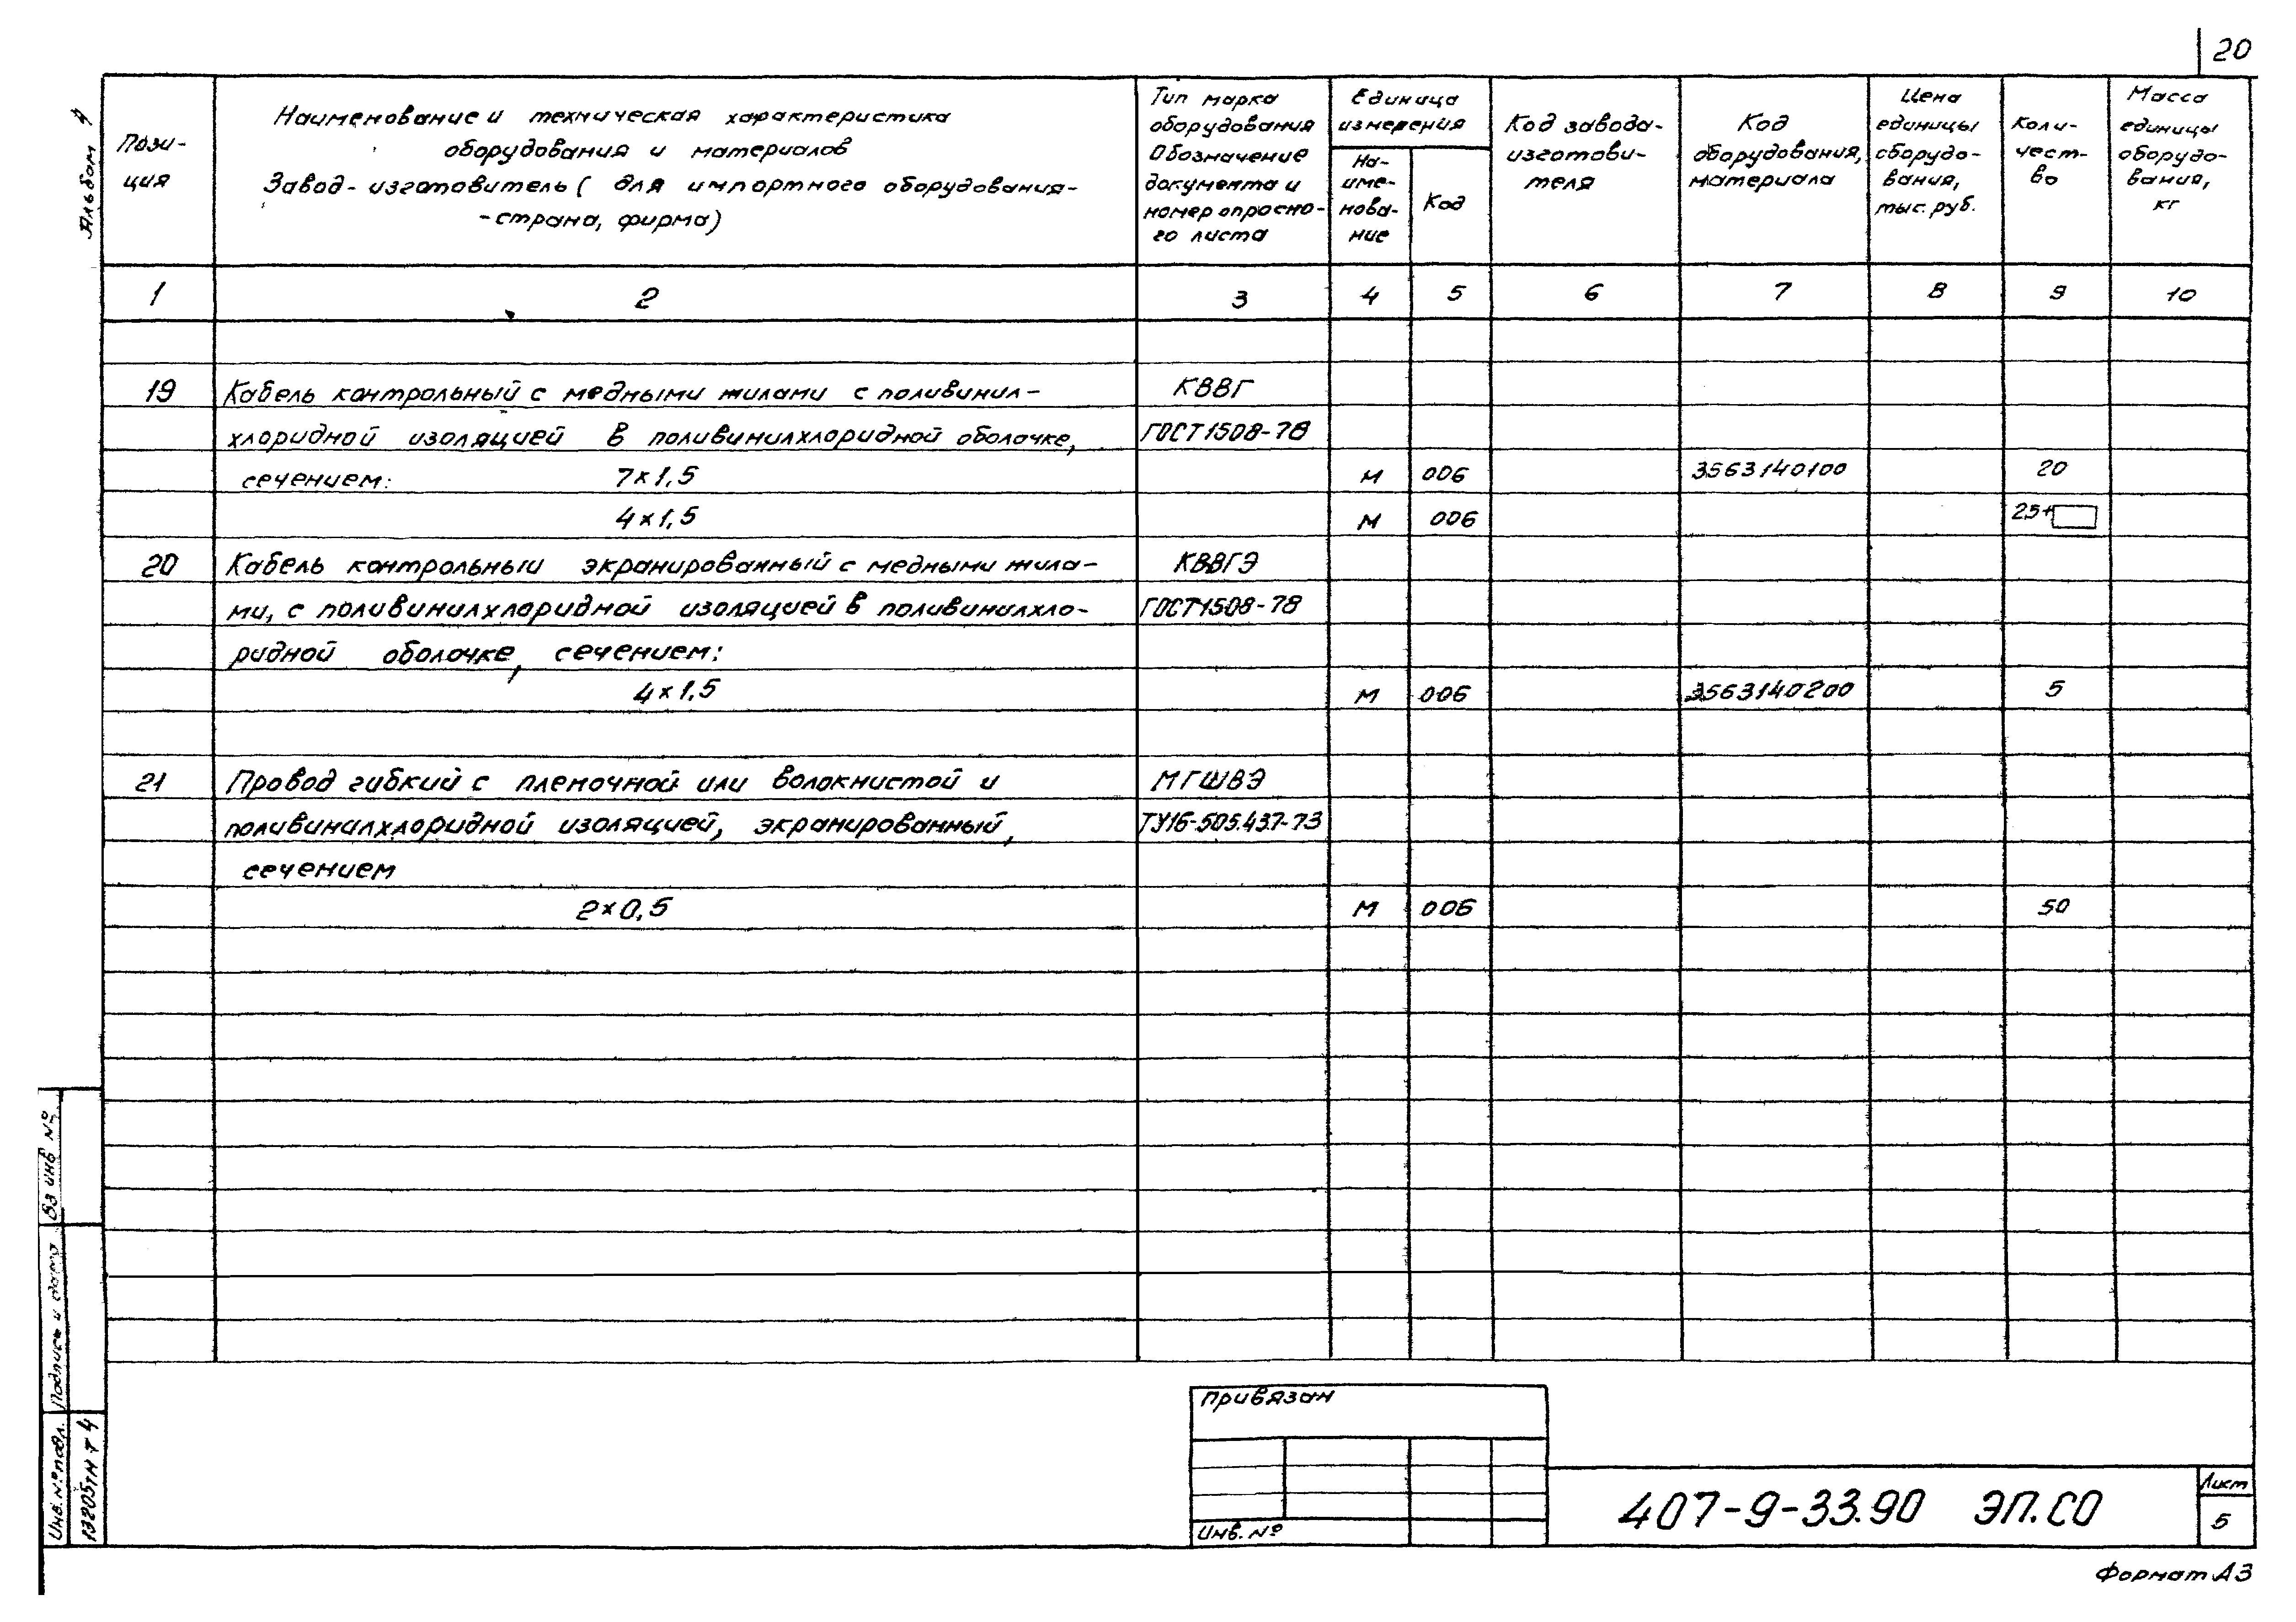 20
Альбом 4
Пози-
ция
Наименование и техническая характеристика
оборудования и материалов
Завод-изготовитель (для импортного оборудования-
-страна, фирма)
Тип марка
оборудования
Обозначение
документа и
номер опросно-
го листа
Единица
измерения
На-
име-
нова-
ние
Код
Код завода-
изготови-
теля
Код
оборудования,
материала
Цена
единицы
оборудо-
вания,
тыс. руб.
Коли-
чест-
во
Масса
единицы
оборудо-
вания,
кг
1 2 3 4 5 6 7 8 9 10
19 Кабель контрольный с медными жилами с поливинил- КВВГ
хлоридной изоляцией в поливинилхлоридной оболочке, ГОСТ 1508-78
сечением: 7×1,5 м 006 3563140100 20
4×1,5 м 006 25+
20 Кабель контрольный экранированный с медными жила- КВВГЭ
ми, с поливинилхлоридной изоляцией в поливинилхло- ГОСТ 1508-78
ридной оболочке, сечением:
4×1,5 м 006 3563140200 5
21 Провод гибкий с пленочной или волокнистой и МГШВЭ
поливинилхлоридной изоляцией, экранированный, ТУ16-505.437-73
сечением
2×0,5 м 006 50
Вз инв №
Подпись и дата
Инв. № подл.
13205тм т 4
Привязан
Инв. №
407-9-33.90 ЭП.СО
Лист
5
Формат А3